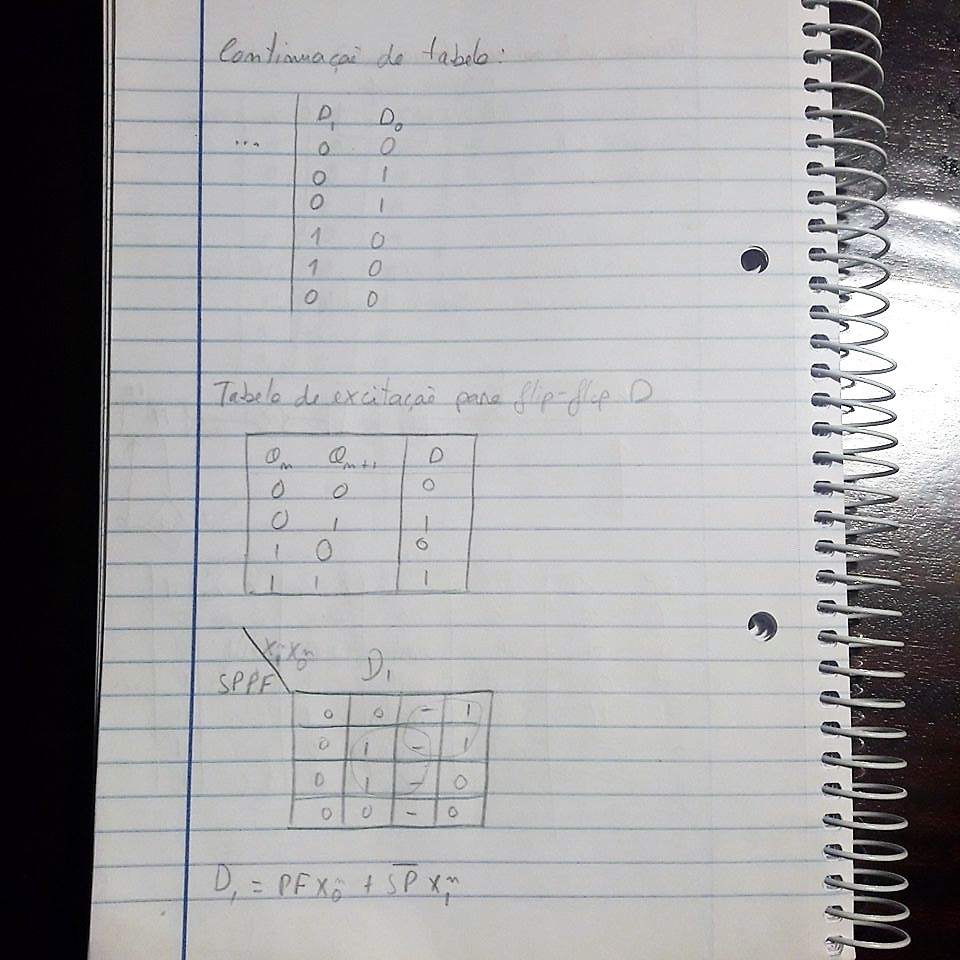 Continuação de tabela:
D₁ D₀
... 0 0
0 1
0 1
1 0
1 0
0 0
Tabela de excitação para flip-flop D
Qₙ Qₙ₊₁ D
0 0 0
0 1 1
1 0 0
1 1 1
X₁ⁿX₀ⁿ D₁
SP PF
0 0 - 1
0 1 - 1
0 1 - 0
0 0 - 0
D₁ = PF X₀ⁿ + S̅P̅ X₁ⁿ